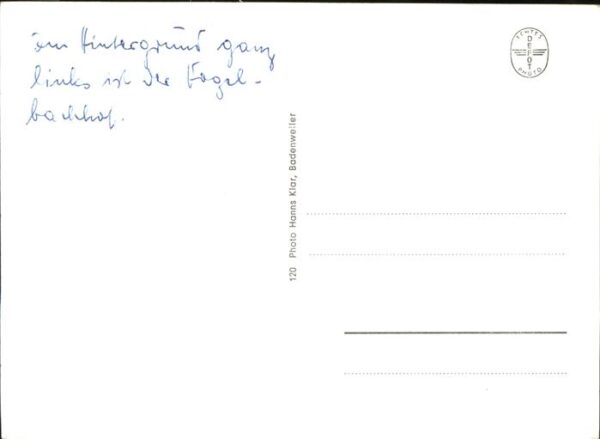 im Hintergrund ganz
links ist der Vogel-
bachhof.
ECHTES
DEFOT
PHOTO
120 Photo Hanns Klar, Badenweiler